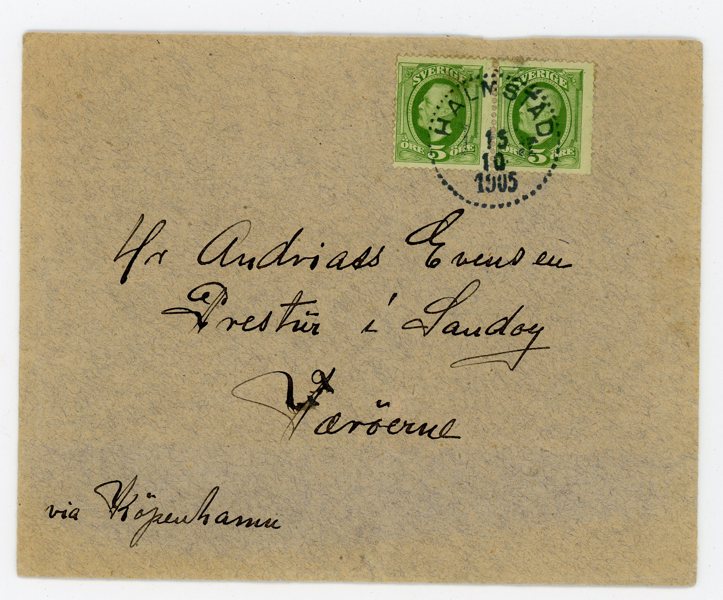 SVERIGE SVERIGE
5 ÖRE 5 ÖRE
HALMSTAD
15
10
1905
Hr Andriass Evensen
Prestür i Sandoy
Færöerne
via Köpenhamn